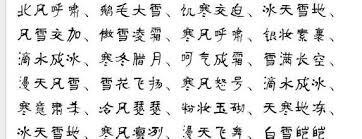 北风呼啸、鹅毛大雪、饥寒交迫、冰天雪地、
风雪交加、傲雪凌霜、寒风呼啸、银妆素裹、
滴水成冰、寒冬腊月、呵气成霜、雪满长空、
漫天风雪、雪花飞扬、寒风怒号、滴水成冰、
寒意肃杀、冷风瑟瑟、粉妆玉砌、天寒地冻、
冰天雪地、寒风凛冽、漫天飞舞、白雪皑皑、